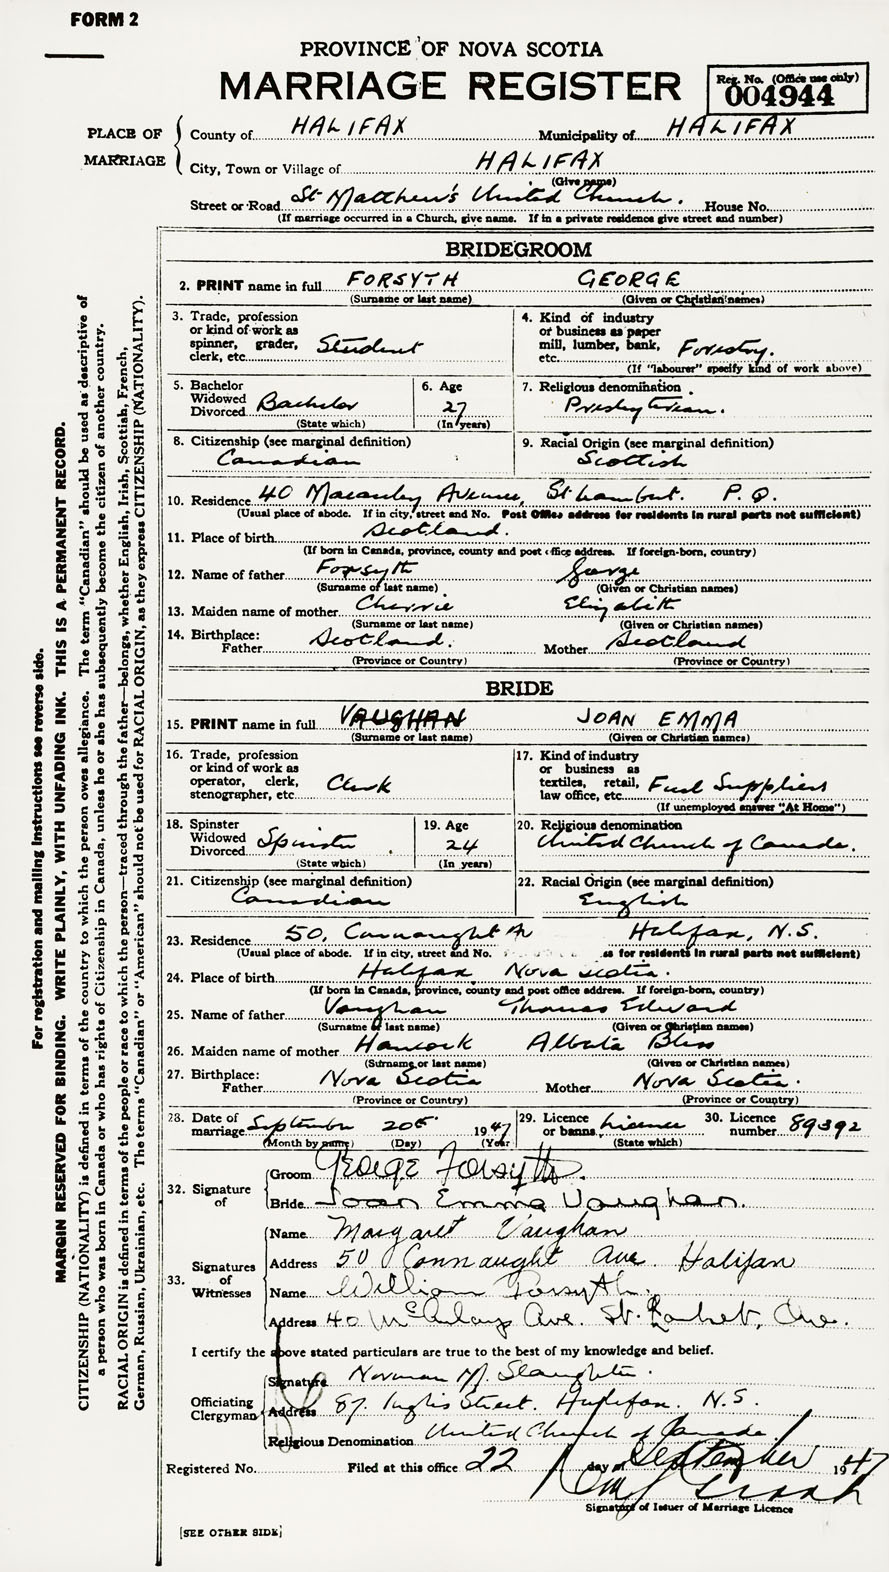 FORM 2
PROVINCE OF NOVA SCOTIA
MARRIAGE REGISTER
Reg. No. (Office use only)
004944
PLACE OF MARRIAGE
County of HALIFAX Municipality of HALIFAX
City, Town or Village of HALIFAX
(Give name)
Street or Road St Matthew's United Church. House No.
(If marriage occurred in a Church, give name. If in a private residence give street and number)
BRIDEGROOM
2. PRINT name in full FORSYTH GEORGE
(Surname or last name) (Given or Christian names)
3. Trade, profession or kind of work as spinner, grader, clerk, etc. Student
4. Kind of industry or business as paper mill, lumber, bank, etc. Forestry.
(If "labourer" specify kind of work above)
5. Bachelor Widowed Divorced Bachelor
(State which)
6. Age 27
(In years)
7. Religious denomination Presbyterian.
8. Citizenship (see marginal definition) Canadian
9. Racial Origin (see marginal definition) Scottish
10. Residence 40 Macauley Avenue, St Lambert. P.Q.
(Usual place of abode. If in city, street and No. Post Office address for residents in rural parts not sufficient)
11. Place of birth Scotland.
(If born in Canada, province, county and post office address. If foreign-born, country)
12. Name of father Forsyth George
(Surname or last name) (Given or Christian names)
13. Maiden name of mother Cherrie Elizabeth
(Surname or last name) (Given or Christian names)
14. Birthplace: Father Scotland. Mother Scotland
(Province or Country) (Province or Country)
BRIDE
15. PRINT name in full VAUGHAN JOAN EMMA
(Surname or last name) (Given or Christian names)
16. Trade, profession or kind of work as operator, clerk, stenographer, etc. Clerk
17. Kind of industry or business as textiles, retail, law office, etc. Fuel Suppliers
(If unemployed answer "At Home")
18. Spinster Widowed Divorced Spinster
(State which)
19. Age 24
(In years)
20. Religious denomination United Church of Canada.
21. Citizenship (see marginal definition) Canadian
22. Racial Origin (see marginal definition) English
23. Residence 50, Connaught Av Halifax, N.S.
(Usual place of abode. If in city, street and No. ss for residents in rural parts not sufficient)
24. Place of birth Halifax Nova Scotia.
(If born in Canada, province, county and post office address. If foreign-born, country)
25. Name of father Vaughan Thomas Edward
(Surname or last name) (Given or Christian names)
26. Maiden name of mother Hancock Alberta Bliss
(Surname or last name) (Given or Christian names)
27. Birthplace: Father Nova Scotia Mother Nova Scotia.
(Province or Country) (Province or Country)
28. Date of marriage September 20th 1947
(Month by name) (Day) (Year)
29. Licence or banns Licence
(State which)
30. Licence number 89392
32. Signature of
Groom George Forsyth.
Bride Joan Emma Vaughan.
33. Signatures of Witnesses
Name Margaret Vaughan
Address 50 Connaught Ave Halifax
Name William Forsyth.
Address 40 McAulay Ave. St. Lambert, Que.
I certify the above stated particulars are true to the best of my knowledge and belief.
Officiating Clergyman
Signature Norman M. Slaughter.
Address 87. Inglis Street. Halifax. N.S.
Religious Denomination United Church of Canada.
Registered No. Filed at this office 22 day of September 1947
Signature of Issuer of Marriage Licence
[SEE OTHER SIDE]
For registration and mailing instructions see reverse side.
MARGIN RESERVED FOR BINDING. WRITE PLAINLY, WITH UNFADING INK. THIS IS A PERMANENT RECORD.
CITIZENSHIP (NATIONALITY) is defined in terms of the country to which the person owes allegiance. The term "Canadian" should be used as descriptive of
a person who was born in Canada or who has rights of Citizenship in Canada, unless he or she has subsequently become the citizen of another country.
RACIAL ORIGIN is defined in terms of the people or race to which the person—traced through the father—belongs, whether English, Irish, Scottish, French,
German, Russian, Ukrainian, etc. The terms "Canadian" or "American" should not be used for RACIAL ORIGIN, as they express CITIZENSHIP (NATIONALITY).